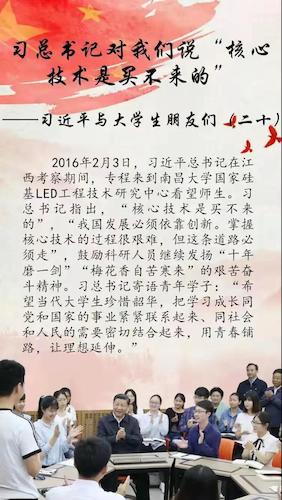 习总书记对我们说“核心
技术是买不来的”
——习近平与大学生朋友们（二十）
2016年2月3日，习近平总书记在江
西考察期间，专程来到南昌大学国家硅
基LED工程技术研究中心看望师生。习
总书记指出，“核心技术是买不来
的”，“我国发展必须依靠创新。掌握
核心技术的过程很艰难，但这条道路必
须走”，鼓励科研人员继续发扬“十年
磨一剑”“梅花香自苦寒来”的艰苦奋
斗精神。习总书记寄语青年学子：“希
望当代大学生珍惜韶华，把学习成长同
党和国家的事业紧紧联系起来、同社会
和人民的需要密切结合起来，用青春铺
路，让理想延伸。”